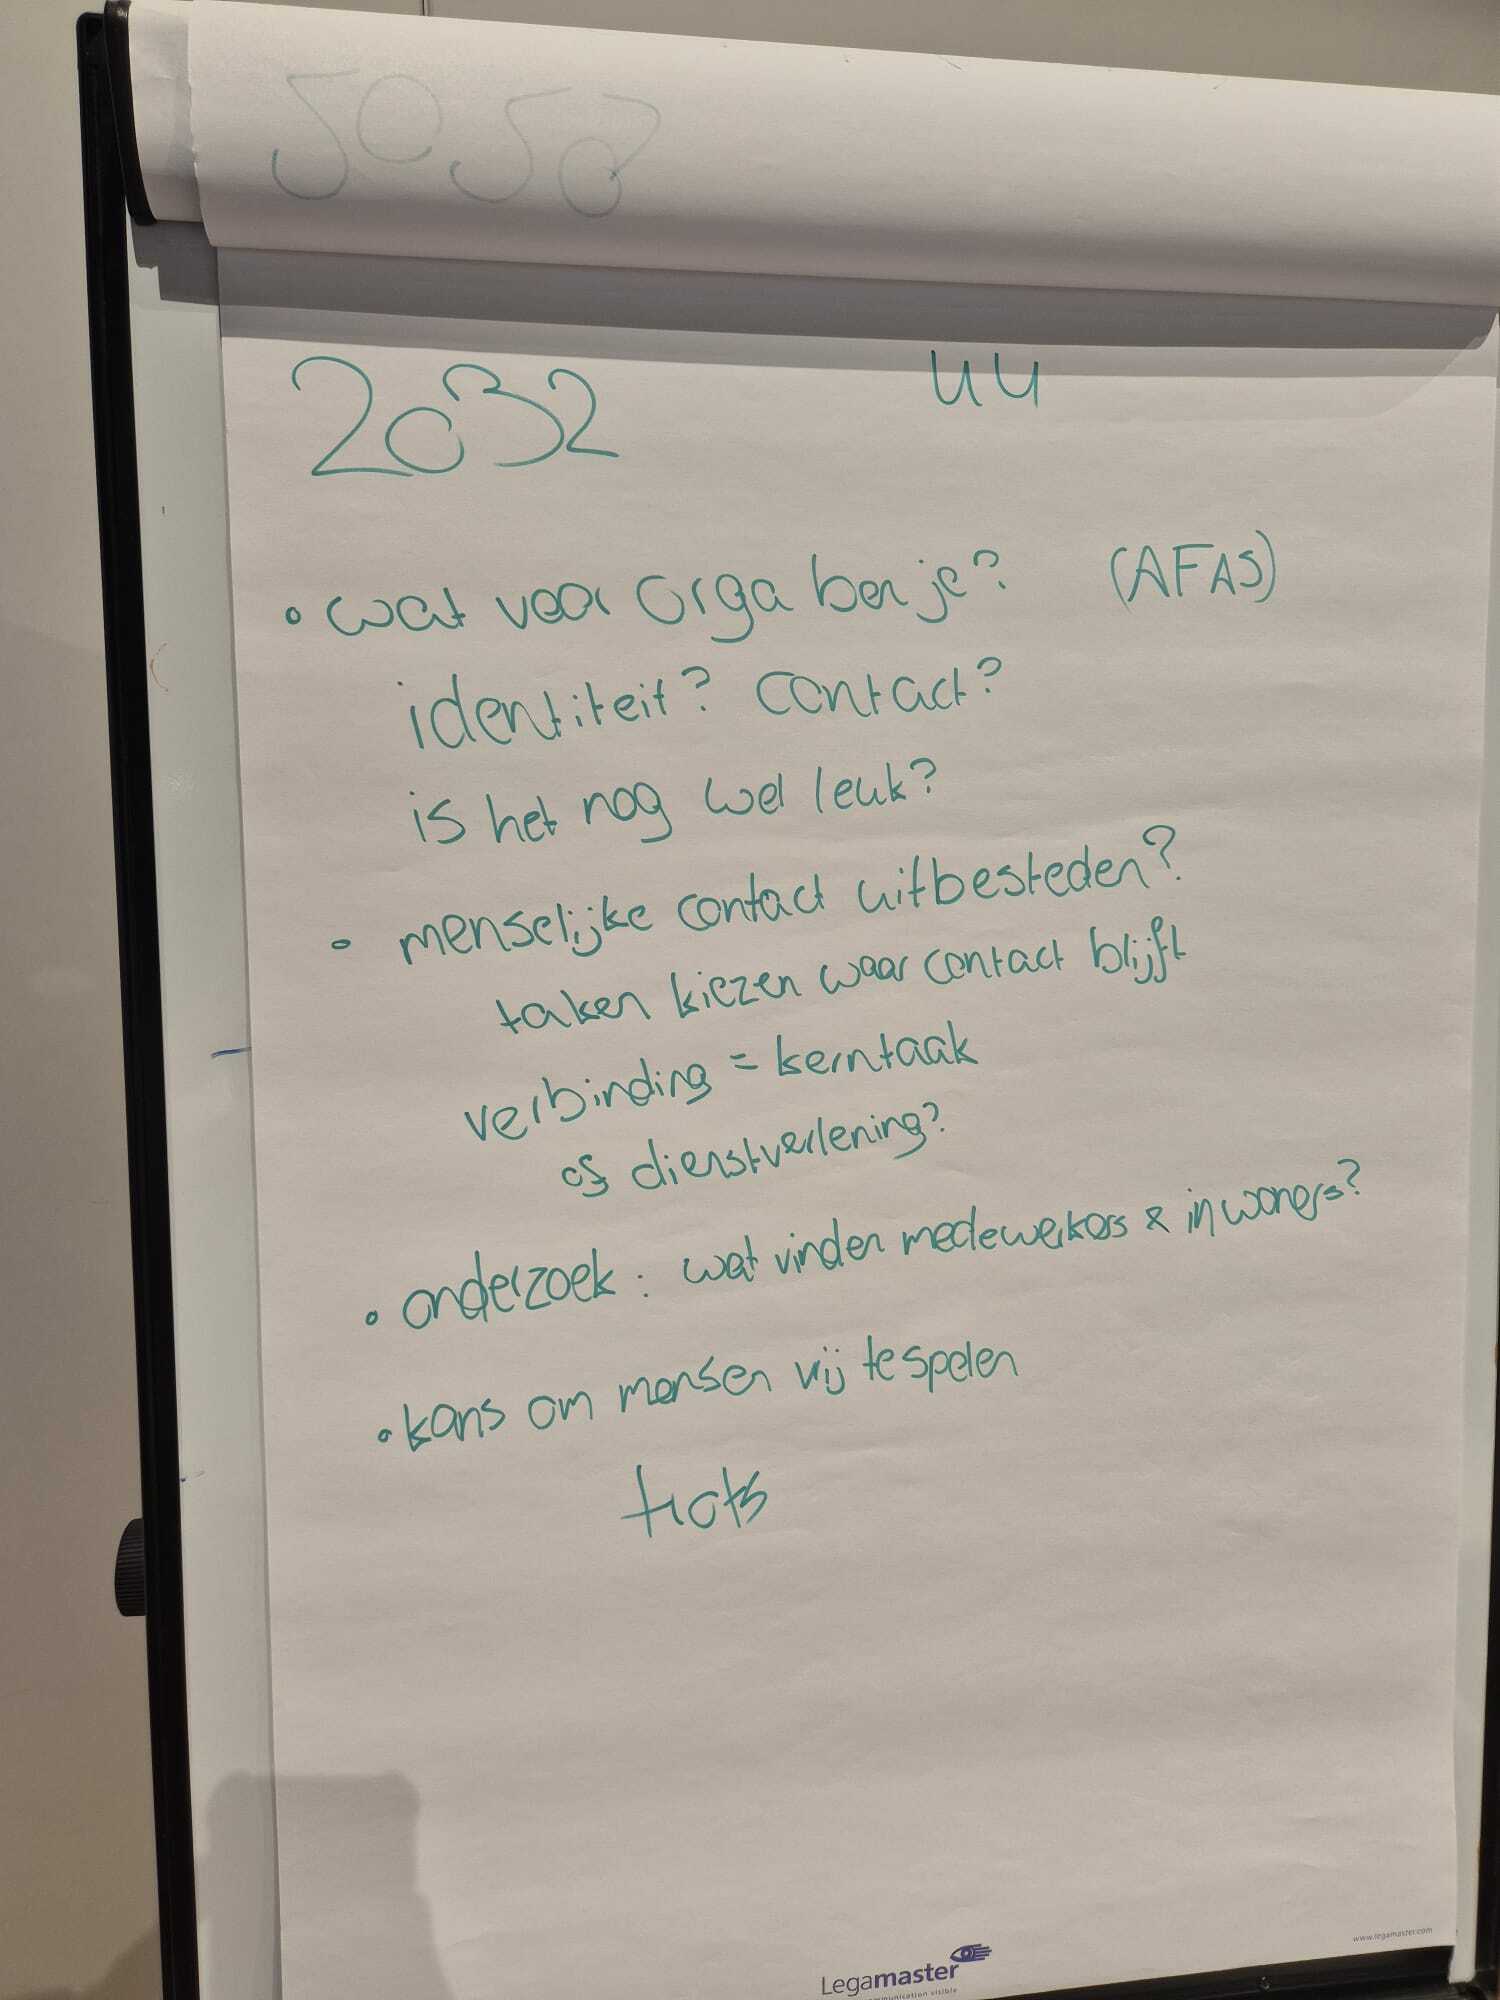 2032 44
• wat voor orga ben je? (AFAS)
identiteit? contact?
is het nog wel leuk?
• menselijke contact uitbesteden?
taken kiezen waar contact blijft
verbinding = kerntaak
of dienstverlening?
• onderzoek: wat vinden medewerkers & inwoners?
• kans om mensen vrij te spelen
trots
www.legamaster.com
Legamaster
communication visible